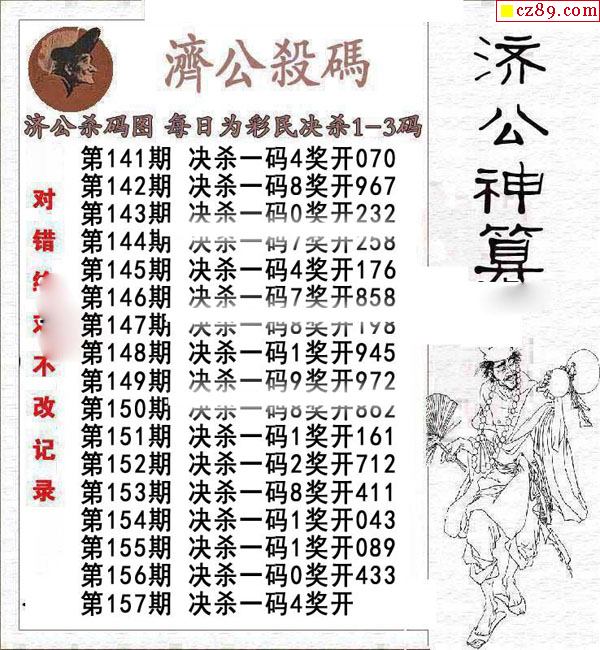 cz89.com
濟公殺碼
济公杀码图 每日为彩民决杀1-3码
第141期 决杀一码4奖开070
第142期 决杀一码8奖开967
第143期 决杀一码0奖开232
第144期 决杀一码7奖开258
第145期 决杀一码4奖开176
第146期 决杀一码7奖开858
第147期 决杀一码8奖开198
第148期 决杀一码1奖开945
第149期 决杀一码9奖开972
第150期 决杀一码8奖开862
第151期 决杀一码1奖开161
第152期 决杀一码2奖开712
第153期 决杀一码8奖开411
第154期 决杀一码1奖开043
第155期 决杀一码1奖开089
第156期 决杀一码0奖开433
第157期 决杀一码4奖开
对错
不改记录
济公神算